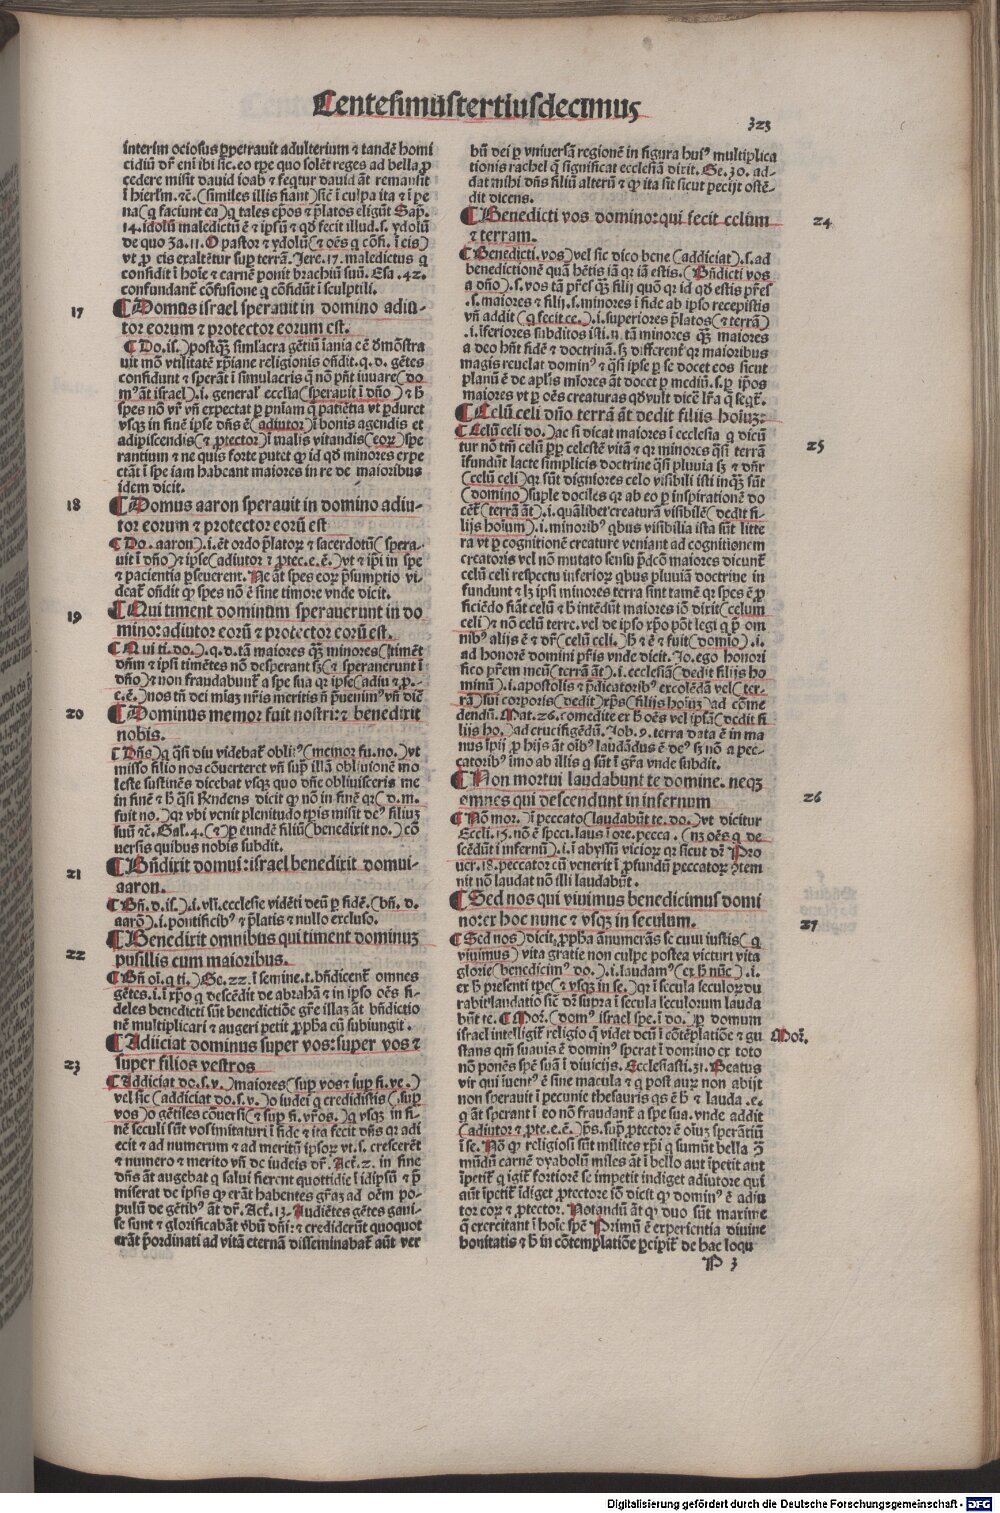 Centesimustertiusdecimus
323
interim ociosus ꝑpetrauit adulterium ⁊ tandē homi
cidiū dr̄ enī ibi sic. eo tꝑe quo solēt reges ad bella ꝓ
cedere misit dauid ioab ⁊ seqtur dauid āt remansit
ī hierlm̄. ⁊c̄. (similes illis fiant) siē ī culpa ita ⁊ ī pe
na (q faciunt ea) q tales ep̄os ⁊ p̄latos eligūt Sap̄.
14. idolū maledictū ē ⁊ ip̄sū ⁊ qd̄ fecit illud. s. ydolū
de quo Za. 11. O pastor ⁊ ydolū (⁊ oēs q cōfi. ī eis)
vt ꝓ eis exaltētur suꝑ terrā. Jere. 17. maledictus q
confidit ī hoīe ⁊ carnē ponit brachiū suū. Esa. 42.
confundant̄ cōfusione q cōfidūt ī sculptili.
17
Domus israel sperauit in domino adiu-
tor eorum ⁊ protector eorum est.
Do. is.) postqꝫ simlacra gētiū īania eē dmōstra
uit mō vtilitatē xp̄iane religionis on̄dit. q. d. gētes
confidunt ⁊ sperāt ī simulacris q̄ nō pn̄t iuuare (do
m⁹ āt israel). i. general̓ ecclīa (sperauit ī dn̄o) ⁊ h̄
spes nō vr̄ vn̄ expectat ꝑ pn̄iam q̄ patiētia vt ꝑduret
vsqꝫ in finē ipse dn̄s ē (adiutor) ī bonis agendis et
adipiscendis (⁊ ꝓtector) ī malis vitandis (eoꝝ) spe
rantium ⁊ ne quis forte putet ꝙ id qd̄ minores expe
ctāt ī spe iam habeant maiores in re de maioribus
idem dicit.
18
Domus aaron sperauit in domino adiu-
tor eorum ⁊ protector eorū est
Do. aaron). i. ēt ordo p̄latoꝝ ⁊ sacerdotū (spera-
uit ī dn̄o) ⁊ ipse (adiutor ⁊ ꝓtec. e. ē.) vt ⁊ ip̄i in spe
⁊ pacientia ꝑseuerent. Ne āt spes eoꝝ p̄sumptio vi-
deat̄ on̄dit ꝙ spes nō ē sine timore vnde dicit.
19
Qui timent dominum sperauerunt in do
mino: adiutor eorū ⁊ protector eorū est.
Qui ti. do.). q. d. tā maiores qꝫ minores (timēt
dn̄m ⁊ ipsi timētes nō desperant sꝫ (⁊ sperauerunt ī
dn̄o) ⁊ non fraudabunt̄ a spe sua qꝛ ipse (adiu ⁊ ꝓ.
e. ē.) nos tn̄ dei mīaꝫ nr̄is meritis n̄ p̄uenim⁹ vn̄ diē
20
Dominus memor fuit nostri: ⁊ benedixit
nobis.
Dn̄s) q q̄si diu videbat̄ obli⁹ (memor fu. no.) vt
misso filio nos cōuerteret vn̄ suꝑ illā obliuionē mo
leste sustinēs dicebat vsqꝫ quo dn̄e obliuisceris me
in finē ⁊ h̄ q̄si Rn̄dens dicit ꝙ nō in finē qꝛ (d. m.
fuit no.) qꝛ vbi venit plenitudo tꝑis misit de⁹ filiuꝫ
suū ⁊c̄. Gal. 4. (⁊) ꝑ eundē filiū (benedixit no.) cō
uersis quibus nobis subdit.
21
Bn̄dixit domui: israel benedixit domui-
aaron.
Bn̄. d. is.). i. vl̄i. ecclesie vidēti deū ꝑ fidē. (bn̄. d.
aarō). i. pontificib⁹ ⁊ p̄latis ⁊ nullo excluso.
22
Benedixit omnibus qui timent dominuꝫ
pusillis cum maioribus.
Bn̄ oī. q ti.) Ge. 22. ī semine. t. bn̄dicent̄ omnes
gētes. i. ī xp̄o q descēdit de abrahā ⁊ in ipso oēs fi-
deles benedicti sūt benedictiōe gr̄e illaꝫ āt bn̄dictio
nē multiplicari ⁊ augeri petit ꝓpb̄a cū subiungit.
23
Adiiciat dominus super vos: super vos ⁊
super filios vestros
Addiciat do. s. v.) maiores (suꝑ vos ⁊ suꝑ fi. ve.)
vel sic (addiciat do. s. v.) o iudei q credidistis (. suꝑ
vos) o gētiles cōuersi (⁊ suꝑ fi. vr̄os.) q vsqꝫ in fi-
nē seculi sūt vos imitaturi ī fide ⁊ ita fecit dn̄s qꝛ adi
ecit ⁊ ad numerum ⁊ ad meritū ipsoꝝ vt. s. cresceret
⁊ numero ⁊ merito vn̄ de iudeis dr̄. Act̄. 2. in fine
dn̄s āt augebat q salui fierent quottidie ī idipsū ⁊ p̄
miserat de ipsis ꝙ erāt habentes gr̄aꝫ ad oēm po-
pulū de gētib⁹ āt dr̄. Act̄. 13. Audiētes gētes gaui-
se sunt ⁊ glorificabāt vb̄ū dn̄i: ⁊ crediderūt quoquot
erāt p̄ordinati ad vitā eternā disseminabat̄ aūt ver
bū dei ꝑ vniuersā regionē in figura hui⁹ multiplica
tionis rachel q̄ significat ecclesiā dixit. Ge. 30. ad-
dat mihi dn̄s filiū alterū ⁊ ꝙ ita sit sicut peciit ostē-
dit dicens.
24
Benedicti vos domino: qui fecit celum
⁊ terram.
Benedicti. vos) vel sic dico bene (addiciat). s. ad
benedictionē quā hētis iā qꝛ iā estis. (Bn̄dicti vos
a dn̄o). s. vos tā pr̄es qꝫ filij quō qꝛ id qd̄ estis pr̄es
. s. maiores ⁊ filij. s. minores ī fide ab ip̄so recepistis
vn̄ addit (q fecit ce.). i. superiores p̄latos (⁊ terrā)
. i. īferiores subditos isti. n. tā minores qꝫ maiores
a deo hn̄t fidē ⁊ doctrinā. sꝫ differenter qꝛ maioribus
magis reuelat domin⁹ ⁊ q̄si ipse ꝑ se docet eos sicut
planū ē de apl̄is mīores āt docet ꝑ mediū. s. ꝑ ip̄os
maiores vt ꝑ oēs creaturas qd̄ vult dicē lr̄a q̄ seqt̄.
25
Celū celi dn̄o terrā āt dedit filiis hoīuꝫ:
Celū celi do.) ac si dicat maiores ī ecclesia q dicū
tur nō tm̄ celū ꝓꝑ celestē vitā ⁊ qꝛ minores q̄si terrā
īfundūt lacte simplicis doctrine q̄si pluuia sꝫ ⁊ dn̄r
(celū celi) qꝛ sūt digniores celo visibili isti inqꝫ sūt
(domino) suple dociles qꝛ ab eo ꝑ inspirationē do
cēt̄ (terrā āt). i. quālibet creaturā visibilē (dedit fi-
lijs hoīum). i. minorib⁹ qbus visibilia ista sūt litte
ra vt ꝑ cognitionē creature veniant ad cognitionem
creatoris vel nō mutato sensu p̄dcō maiores dicunt̄
celū celi respectu inferioꝝ qbus pluuiā doctrine in
fundunt ⁊ lꝫ ipsi minores terra sint tamē qꝛ spes ē ꝓ
ficiēdo fiāt celū ⁊ h̄ intēdūt maiores iō dixit (celum
celi) ⁊ nō celū terre. vel de ipso xp̄o pōt legi q p̄ om
nib⁹ alijs ē ⁊ dr̄ (celū celi.) h̄ ⁊ ē ⁊ fuit (domīo). i.
ad honorē domini pr̄is vnde dicit. Jo. ego honori
fico pr̄em meū (terrā āt). i. ecclesiā (dedit filijs ho
minū). i. apostolis ⁊ p̄dicatorib⁹ excolēdā vel (ter-
rā) sui corporis (dedit) xp̄s (filijs hoīuꝫ) ad cōme
dendū. Mat. 26. comedite ex h̄ oēs vel ip̄sā (dedit fi
lijs ho.) ad crucifigēdū. Job. 9. terra data ē in ma
nus īpij ꝓ hijs āt oīb⁹ laudādus ē de⁹ sꝫ nō a pec-
catorib⁹ imo ab illis q sūt ī gr̄a vnde subdit.
26
Non mortui laudabunt te domine. neqꝫ
omnes qui descendunt in infernum
Nō mor.) ī peccato (laudabūt te. do.) vt dicitur
Eccli. 15. nō ē speci. laus ī ore. pecca. (nꝫ oēs q de-
scēdūt ī infernū). i. ī abyssū vicioꝝ qꝛ sicut dr̄ Pro
uer. 18. peccator cū venerit ī ꝓfundū peccatoꝝ ꝯtem
nit nō laudat nō illi laudabūt.
27
Sed nos qui viuimus benedicimus domi
no: ex hoc nunc ⁊ vsqꝫ in seculum.
Sed nos) dicit, ꝓpb̄a ānumerās se cum iustis (q
viuimus) vita gratie non culpe postea victuri vita
glorie (benedicim⁹ do.). i. laudam⁹ (ex h̄ nūc). i.
ex h̄ presenti tꝑe (⁊ vsqꝫ in se.) qꝛ ī secula seculoꝝ du
rabit laudatio sic̄ dr̄ supra ī secula seculorum lauda
būt te. Mor̄. (dom⁹ israel spe. ī do.) Per domum
israel intelligit̄ religio q̄ videt deū ī cōtēplatiōe ⁊ gu
Mor̄.
stans qm̄ suauis ē domin⁹ sperat ī domino ex toto
nō ponēs spē suā ī diuicijs. Ecclesiasti. 31. Beatus
vir qui iuent⁹ ē sine macula ⁊ q post auꝝ non abijt
non sperauit ī pecunie thesauris qs ē h̄ ⁊ lauda. e.
q āt sperant ī eo nō fraudant̄ a spe sua. vnde addit
(adiutor ⁊ ꝓte. e. ē.) ꝓs. suꝑ ꝓtector ē oīuꝫ sperātiū
ī se. Nō ꝙ religiosi sūt milites xp̄i q sumūt bella ꝯ̄
mūdū carnē dyabolū miles āt ī bello aut īpetit aut
īpetit̄ q igit̄ fortiorē se impetit indiget adiutore qui
aūt īpetit̄ īdiget ꝓtectore iō dicit ꝙ domin⁹ ē adiu
tor eoꝝ ⁊ ꝓtector. Notandū āt ꝙ duo sūt maxime
q̄ exercitant ī hoīe spē Primū ē experientia diuine
bonitatis ⁊ h̄ in cōtemplatiōe ꝑcipit̄ de hac loqu
P 3
Digitalisierung gefördert durch die Deutsche Forschungsgemeinschaft - DFG